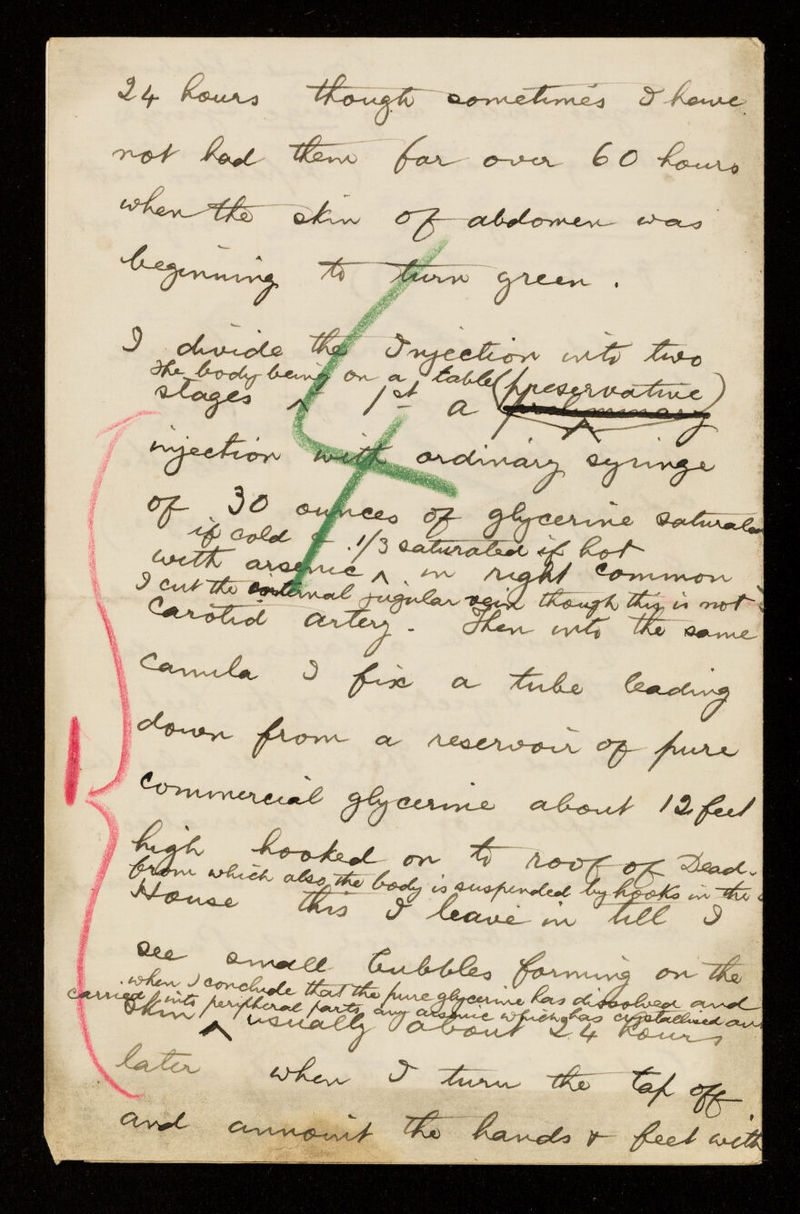 24 hours though sometimes I have
not had them for over 60 hours
when the skin of abdomen was
beginning to turn green.
I divide the Injection into two
The body being on a table (preservative)
stages ^ 1st a preliminary
injection with ordinary syringe
of 30 ounces of glycerine saturated
if cold - 1/3 saturated if hot
with arsenic ^ in right common
I cut the internal jugular vein though this is not
carotid artery. Then into the same
canula I fix a tube leading
down from a reservoir of pure
commercial glycerine about 12 feet
high hooked on to roof of Dead-
from which also the body is suspended by hooks in the
House this I leave in till I
see small bubbles forming on the
when I conclude that the pure glycerine has dissolved and
carried into peripheral parts any arsenic which has crystallised
skin ^ usually about 24 hours
later when I turn the tap off
and annoint the hands & feet with